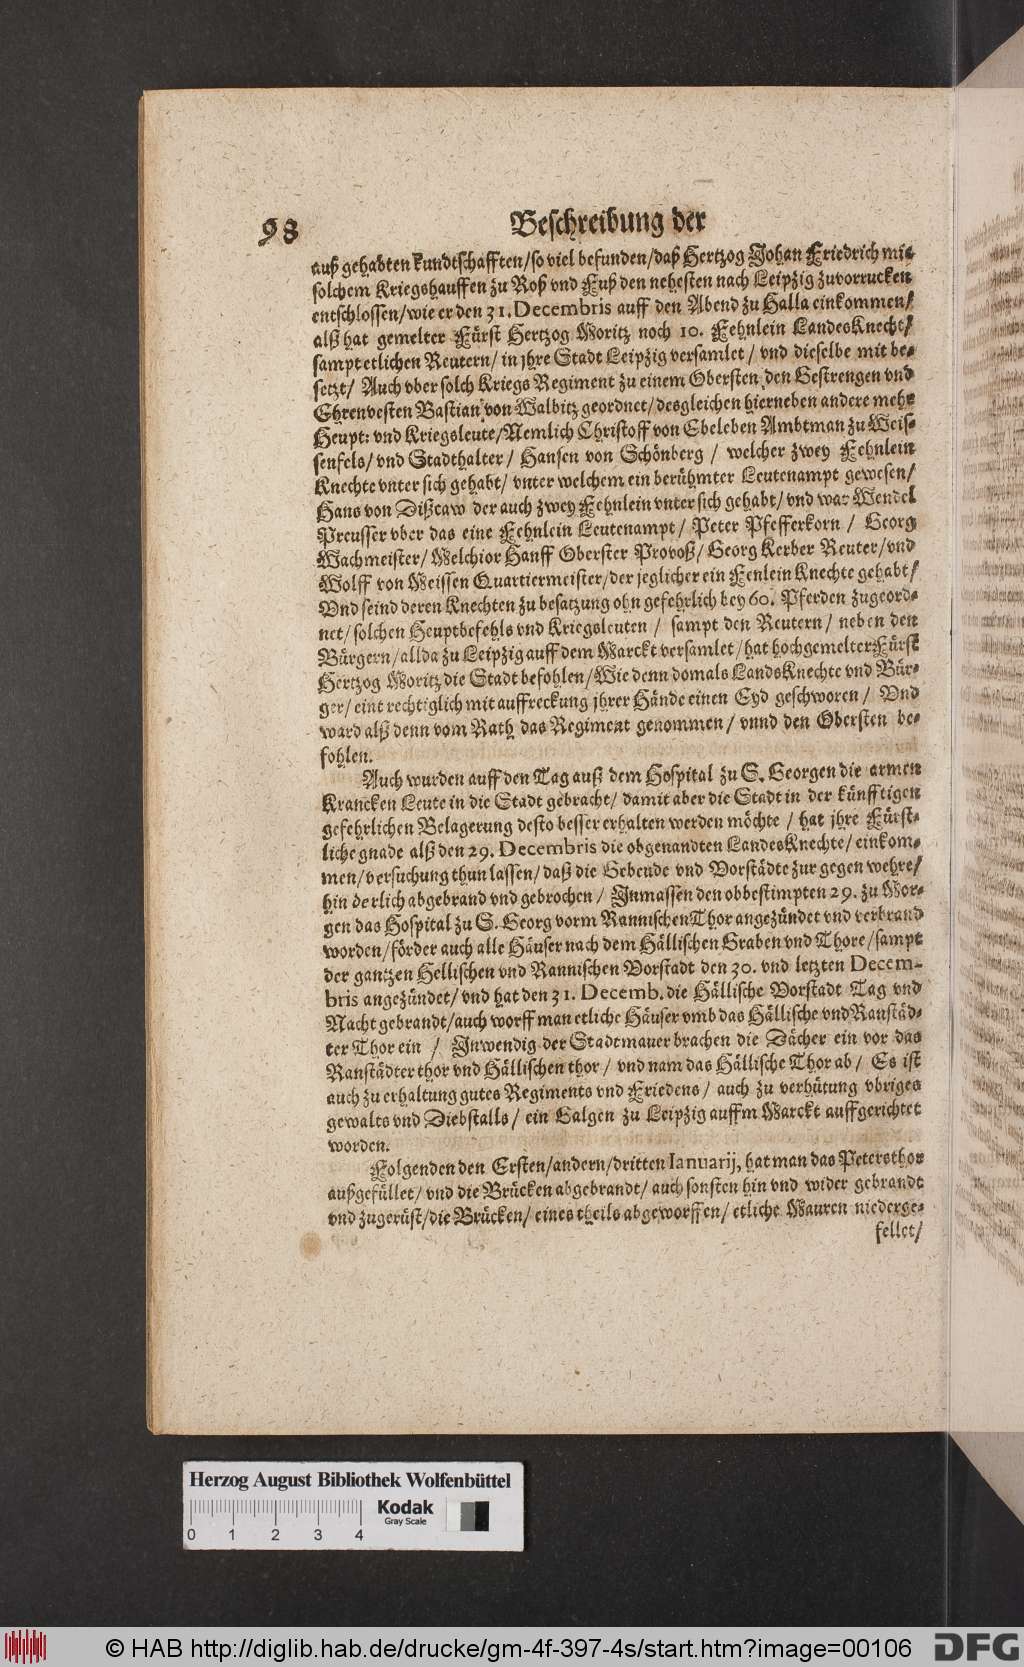 98
Beschreibung der
auß gehabten kundtschafften/so viel befunden/daß Hertzog Johan Friedrich mit
solchem Kriegshauffen zu Roß vnd Fuß den nehesten nach Leipzig zuvorrucken
entschlossen/wie er den 31. Decembris auff den Abend zu Halla einkommen/
alß hat gemelter Fürst Hertzog Moritz noch 10. Fehnlein LandesKnecht/
sampt etlichen Reutern/in jhre Stadt Leipzig versamlet/vnd dieselbe mit be-
setzt/ Auch vber solch Kriegs Regiment zu einem Obersten den Gestrengen vnd
Ehrenvesten Bastian von Walbitz geordnet/desgleichen hierneben andere mehr
Heupt: vnd Kriegsleute/Nemlich Christoff von Ebeleben Ambtman zu Weis-
senfels/vnd Stadthalter/ Hansen von Schönberg / welcher zwey Fehnlein
Knechte vnter sich gehabt/ vnter welchem ein berühmter Leutenampt gewesen/
Hans von Dißcaw der auch zwey Fehnlein vnter sich gehabt/vnd war Wendel
Preusser vber das eine Fehnlein Leutenampt/ Peter Pfefferkorn / Georg
Wachmeister/Melchior Hanff Oberster Provoß/Georg Kerber Reuter/vnd
Wolff von Meissen Quartiermeister/der jeglicher ein Fenlein Knechte gehabt/
Vnd seind deren Knechten zu besatzung ohn gefehrlich bey 60. Pferden zugeord-
net/solchen Heuptbefehls vnd Kriegsleuten / sampt den Reutern/ neben den
Bürgern/allda zu Leipzig auff dem Marckt versamlet/hat hochgemelter Fürst
Hertzog Moritz die Stadt befohlen/Wie denn domals LandsKnechte vnd Bür-
ger/eintrechtiglich mit auffreckung jhrer Hände einen Eyd geschworen/ Vnd
ward alß denn vom Rath das Regiment genommen/ vnnd den Obersten be-
fohlen.
Auch wurden auff den Tag auß dem Hospital zu S. Georgen die armen
Krancken Leute in die Stadt gebracht/damit aber die Stadt in der künfftigen
gefehrlichen Belagerung desto besser erhalten werden möchte / hat jhre Fürst-
liche gnade alß den 29. Decembris die obgenandten LandesKnechte/einkom-
men/versuchung thun lassen/daß die Gebeude vnd Vorstädte zur gegen wehre/
hin derlich abgebrand vnd gebrochen/ Inmassen den obbestimpten 29. zu Mor-
gen das Hospital zu S. Georg vorm Rannischen Thor angezündet vnd verbrand
worden/förder auch alle Häuser nach dem Hällischen Graben vnd Thore/sampt
der gantzen Hellischen vnd Rannischen Vorstadt den 30. vnd letzten Decem-
bris angezündet/vnd hat den 31. Decemb. die Hällische Vorstadt Tag vnd
Nacht gebrandt/auch worff man etliche Häuser vmb das Hällische vnd Ranstäd-
ter Thor ein / Inwendig der Stadtmauer brachen die Dächer ein vor das
Ranstädter thor vnd Hällischen thor/ vnd nam das Hällische Thor ab/ Es ist
auch zu erhaltung gutes Regiments vnd Friedens/ auch zu verhütung vbriges
gewalts vnd Diebstalls/ ein Galgen zu Leipzig auffm Marckt auffgerichtet
worden.
Folgenden den Ersten/andern/dritten Ianuarij, hat man das Petersthor
außgefüllet/vnd die Brücken abgebrandt/auch sonsten hin vnd wider gebrandt
vnd zugerüst/die Brücken/ eines theils abgeworffen/etliche Mauren niederge-
fellet/
Herzog August Bibliothek Wolfenbüttel
Kodak
Gray Scale
0 1 2 3 4
© HAB http://diglib.hab.de/drucke/gm-4f-397-4s/start.htm?image=00106
DFG